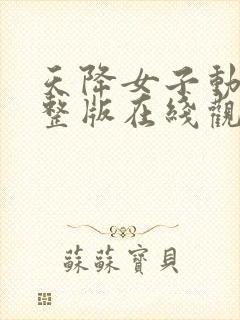 天降女子動
整版在綫觀
蘇蘇寶貝